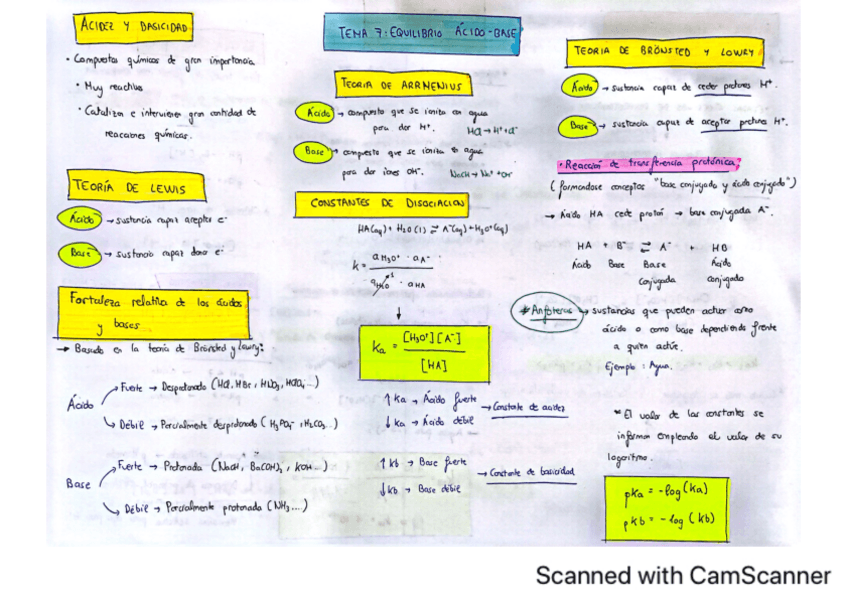 ACIDEZ Y BASICIDAD
· Compuestos químicos de gran importancia.
· Muy reactivos
· Cataliza e intervienen gran cantidad de
reacciones químicas.
TEORÍA DE LEWIS
Ácido → sustancia capaz aceptar e⁻
Base → sustancia capaz donar e⁻
Fortaleza relativa de los ácidos
y bases
→ Basado en la teoría de Brönsted y Lowry:
Ácido
Fuerte → Desprotonado (HCl, HBr, HNO₃, HClO₄ ...)
Débil → Parcialmente desprotonado (H₃PO₄, H₂CO₃...)
Base
Fuerte → Protonada (NaOH, Ba(OH)₂, KOH ...)
Débil → Parcialmente protonada (NH₃ ....)
TEMA 7: EQUILIBRIO ÁCIDO-BASE
TEORIA DE ARRHENIUS
Ácido → compuesto que se ioniza en agua
para dar H⁺. HCl → H⁺ + Cl⁻
Base → compuesto que se ioniza en agua
para dar iones OH⁻. NaOH → Na⁺ + OH⁻
CONSTANTES DE DISOCIACION
HA(aq) + H₂O (l) ⇌ A⁻(aq) + H₃O⁺(aq)
k = a H₃O⁺ · a A⁻ / a H₂O · a HA
1
Ka = [H₃O⁺][A⁻] / [HA]
↑ Ka → Ácido fuerte → Constante de acidez
↓ Ka → Ácido débil
↑ Kb → Base fuerte → Constante de basicidad
↓ Kb → Base débil
TEORIA DE BRÖNSTED Y LOWRY
Ácido → sustancia capaz de ceder protones H⁺.
Base → sustancia capaz de aceptar protones H⁺.
· Reacción de transferencia protónica:
(formandose conceptos "base conjugada y ácido conjugado")
→ Ácido HA cede protón → base conjugada A⁻.
HA + B⁻ ⇌ A⁻ + HB
Ácido Base Base Ácido
conjugada conjugado
* Anfóteros → sustancias que pueden actuar como
ácido o como base dependiendo frente
a quien actúe.
Ejemplo: Agua.
* El valor de las constantes se
informan empleando el valor de su
logaritmo.
pKa = -log(Ka)
pKb = -log(Kb)
Scanned with CamScanner